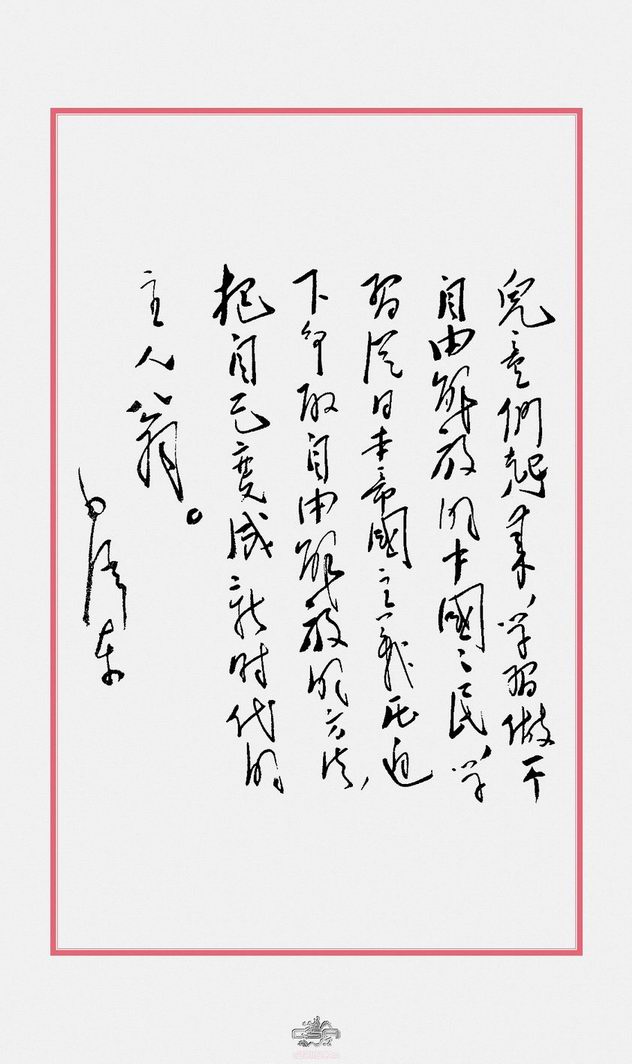 兒童們起来,学習做一个
自由解放的中國々民,学
習從日本帝國主義压迫
下争取自由解放的方法,
把自己变成新时代的
主人翁。
毛泽东